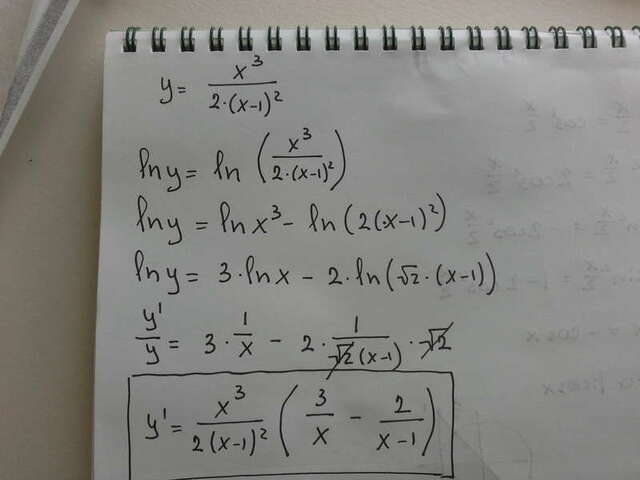 y = x³ / 2·(x-1)²
ln y = ln (x³ / 2·(x-1)²)
ln y = ln x³ - ln (2(x-1)²)
ln y = 3·ln x - 2·ln (√2·(x-1))
y'/y = 3·1/x - 2·1/√2(x-1)·√2
y' = x³ / 2(x-1)² (3/x - 2/x-1)